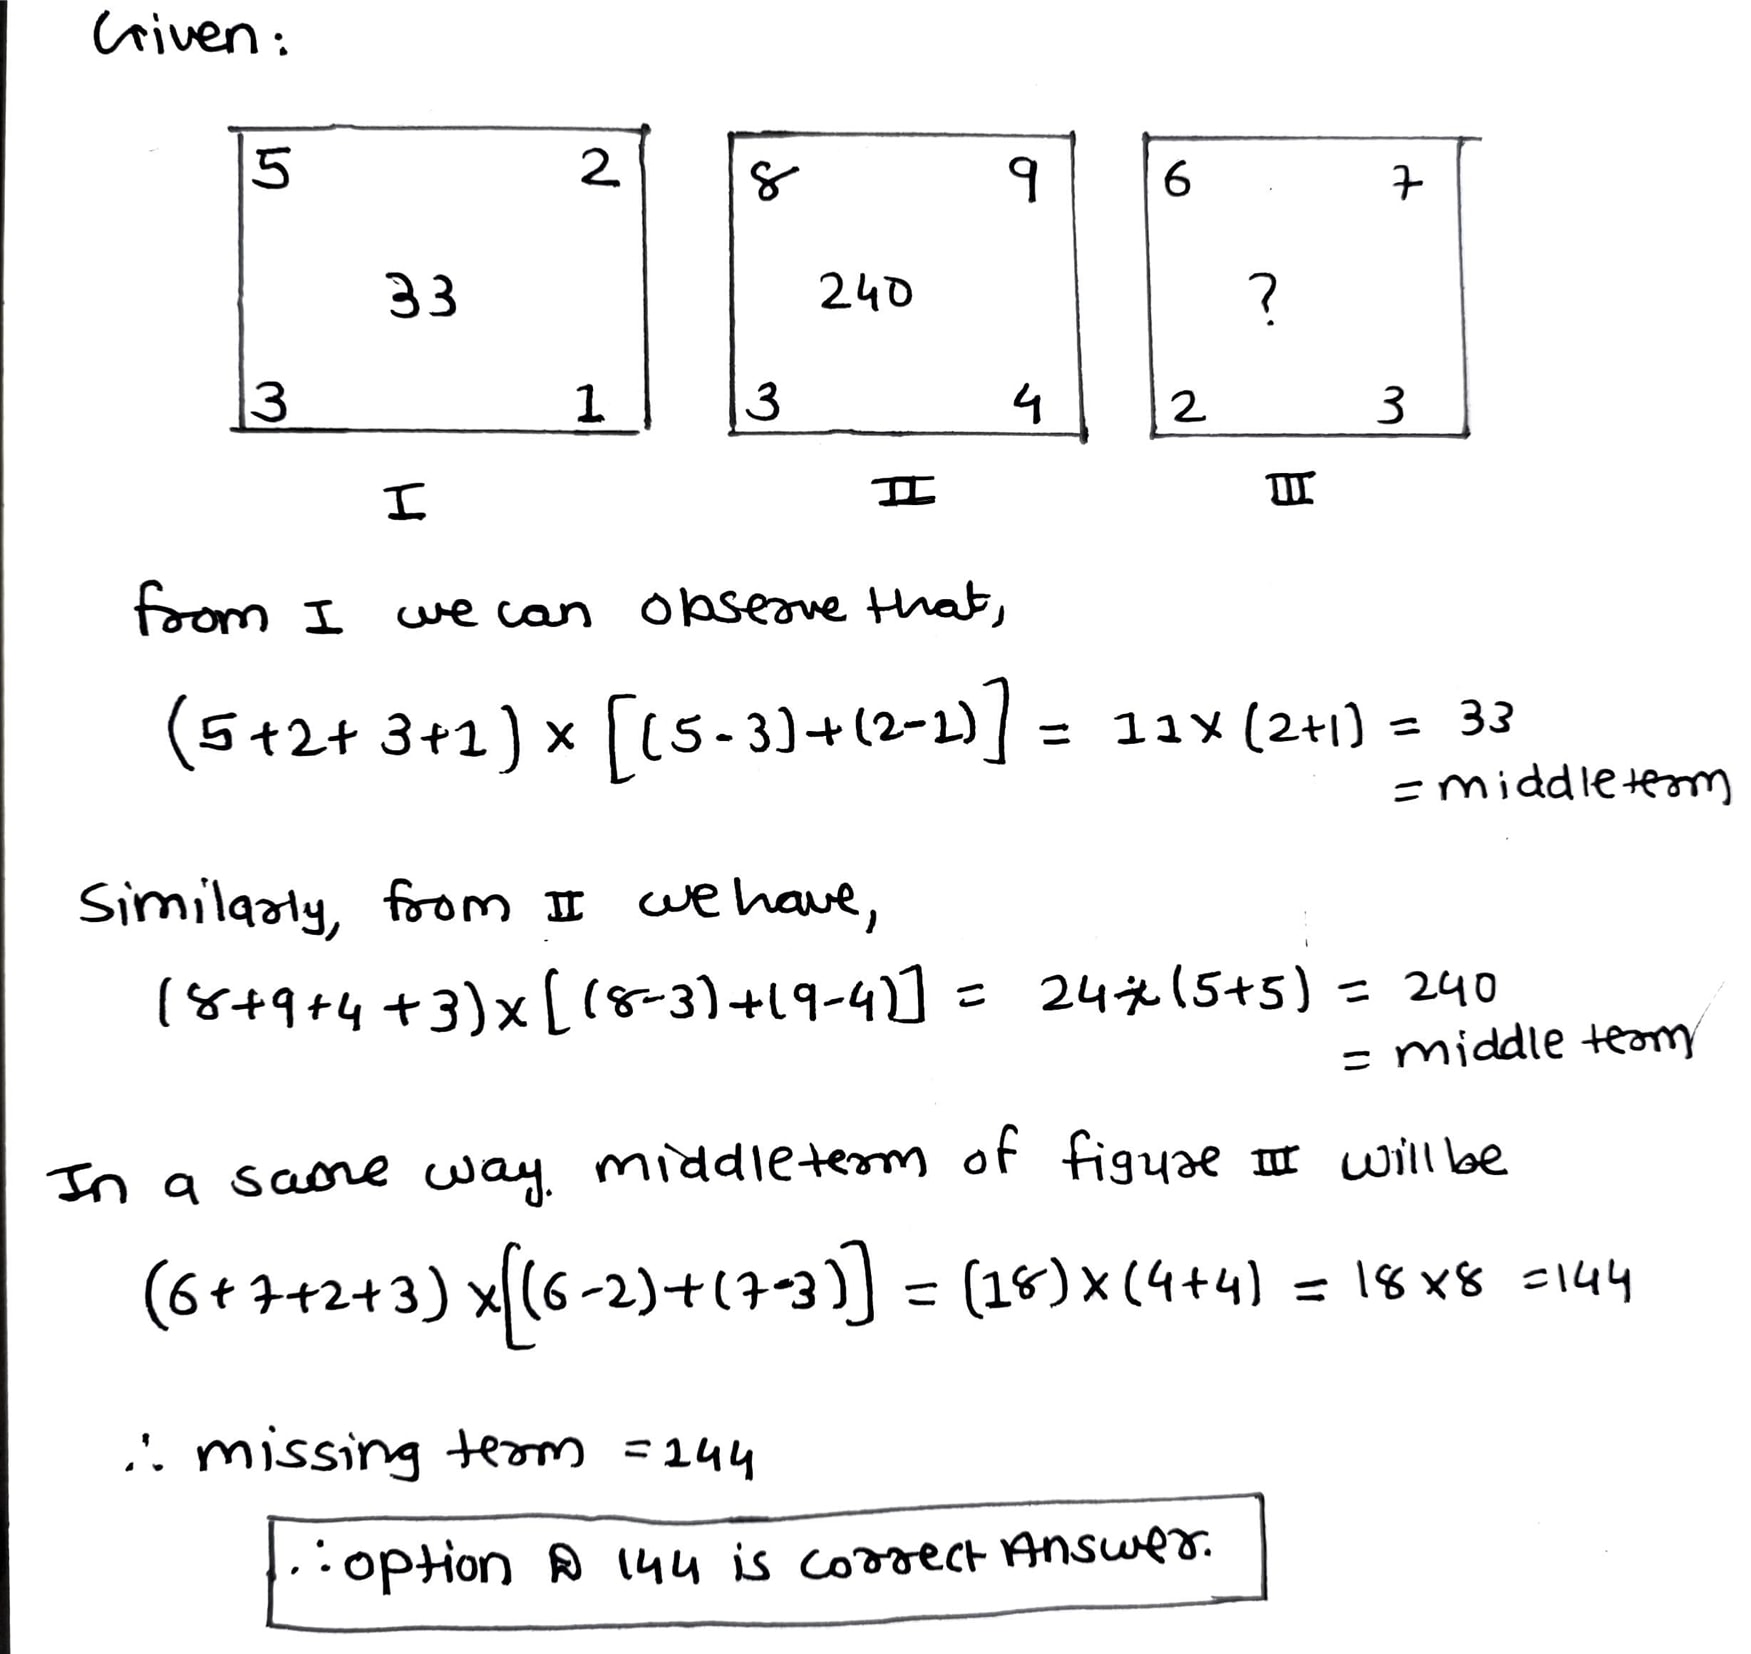 Given:
5 2 8 9 6 7
33 240 ?
3 1 3 4 2 3
I II III
from I we can observe that,
(5+2+3+1) × [(5-3)+(2-1)] = 11×(2+1) = 33
= middle term
Similarly, from II we have,
(8+9+4+3)×[(8-3)+(9-4)] = 24×(5+5) = 240
= middle term
In a same way. middle term of figure III will be
(6+7+2+3)×[(6-2)+(7-3)] = (18)×(4+4) = 18×8 =144
∴ missing term =144
∴ option 144 is correct Answer.